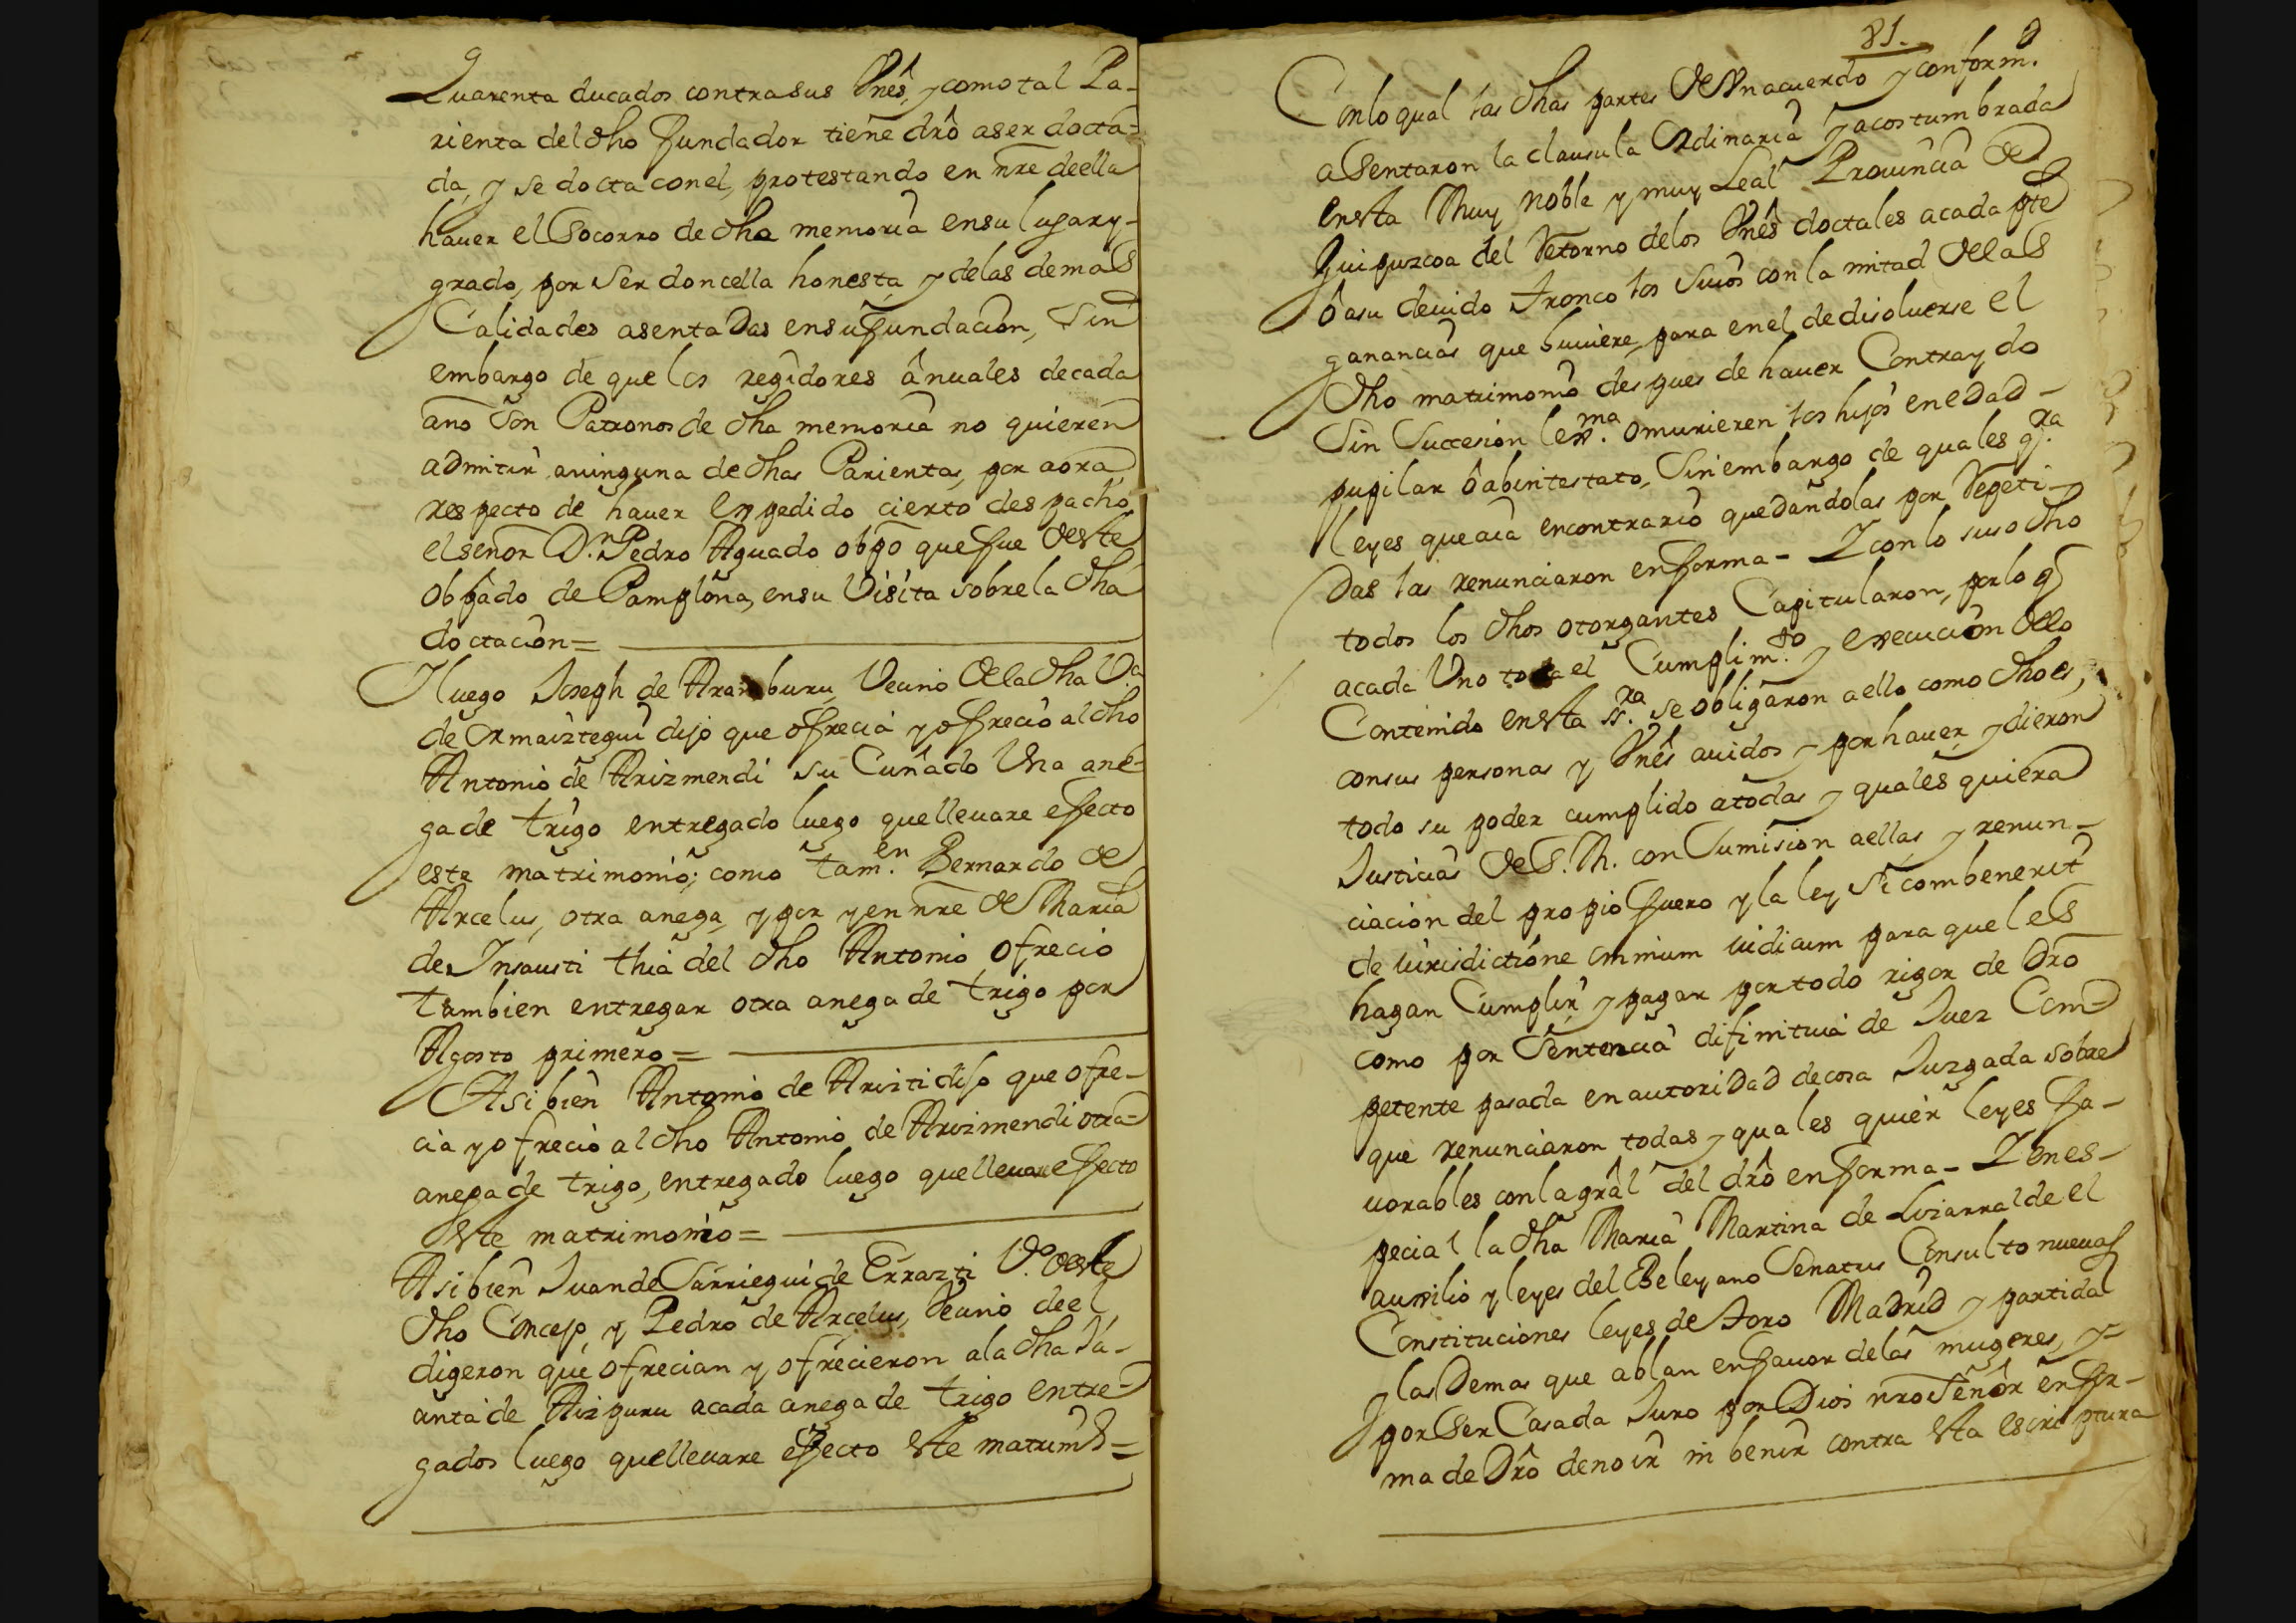 Quarenta ducados contra sus Vnês, y como tal Pa-
rienta del dho fundador tiene drô a ser docta-
da, y se docta con el, protestando en nre de ella
hauer el Socorro de dha memoria en su lugar y-
grado, por ser doncella honesta, y de las demas
Calidades asentadas en su fundacion, Sin
embargo de que los regidores ânuales de cada
año son Patronos de dha memoria no quieren
admitir aninguna de dhas Parientas, por aora
respecto de hauer expedido cierto despacho
el señor D.n Pedro Aguado obpo que fue de este
Obpado de Pamplona, en su Visita sobre la dha
doctacion=
Y luego Joseph de Aramburu Vecino de la dha V.a
de Ormaiztegui dijo que ofrecia y ofrecio al dho
Antonio de Arizmendi su Cuñado Vna ane-
ga de trigo entregado luego que lleuare efecto
este matrimonio; como tam.en Bernardo de
Arcelus, otra anega, y por y en nre de Maria
de Insausti thia del dho Antonio, ofrecio
tambien entregar otra anega de trigo por
Agosto primero=
Asi bien Antonio de Arizti dijo que ofre-
cia y ofrecio al dho Antonio de Arizmendi otra
anega de trigo, entregado luego que lleuare efecto
este matrimonio=
Asi bien Juan de Sarriegui de Errazti V.o de este
dho Concejo, y Pedro de Arcelus, Vecino de el
digeron que ofrecian y ofrecieron a la dha Ja-
anta de Aizpuru acada anega de trigo entre-
gados luego que lleuare efecto este matrim.o=
81.
Con lo qual las dhas partes de Vn acuerdo y conform.d
asentaron la clausula Ordinaria y acostumbrada
en esta Muy noble y muy Leal Prouincia de
Guipuzcoa del Retorno de los Vnês doctales acada pte
ô a su deuido tronco los suios con la mitad de las
ganancias que huuiere, para en el de disoluerse el
dho matrimonio despues de hauer Contraydo
Sin Succesion lex.ma o murieren los hijos en edad-
pupilar ô abintestato, Sin embargo de quales q.ra
leyes que aia en contrario quedandolas por Repeti-
das las renunciaron en forma- Y con lo suso dho
todos los dhos otorgantes Capitularon, por lo q
acada Vno toca el Cumplim.to y execucion de lo
Contenido en esta ss.ra se obligaron a ello como dho es,
con sus personas y Vnês auidos y por hauer, y dieron
todo su poder cumplido a todas y quales quiera
Justicias de S. M. con Sumision a ellas, y renun-
ciacion del propio fuero y la ley Si combenerit
de iurisdictione omnium iudicum para que les
hagan Cumplir, y pagar por todo rigor de Dro
como por Sentencia difinitiua de Juez Com-
petente pasada en autoridad de cosa Juzgada sobre
que renunciaron todas y quales quier leyes fa-
uorables con la grâl del drô en forma- Y en es-
pecial la dha Maria Martina de Lizarralde el
auxilio y leyes del Beleyano Senatus Consulto nueuas
Constituciones leyes de toro Madrid y partida
y las Demas que ablan en fauor de las mugeres, y-
por Ser Casada Juro por Dios nro Señor en for-
ma de Drô de no ir ni benir contra esta escriptura